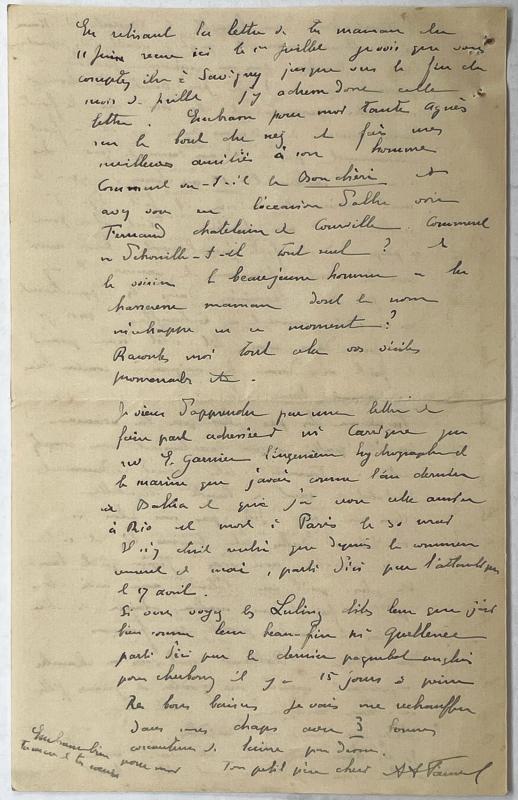 En relisant la lettre de ta maman du
11 juin reçue ici le 1er juillet je vois que vous
comptez être à Savigny jusque vers la fin du
mois de juillet j'y adresse donc cette
lettre. Embrasse pour moi tante Agnès
sur le bout du nez et fais mes
meilleures amitiés à son homme
Comment va-t-il le Bon chéri et
avez vous eu l'occasion d'aller voir
Fernand chatelain de Courville. Comment
se débrouille-t-il tout seul? et
le voisin le beau jeune homme a la
chasseresse maman dont le nom
m'échappe en ce moment?
Raconte moi tout cela vos visites
promenades etc.
Je viens d'apprendre par une lettre de
faire part adressée à Mr que
Mr E. Garnier l'ingénieur hydrographe de
la marine que j'avais connu l'an dernier
à Bahia et que j'ai revu cette année
à Rio est mort à Paris le 30 mai
Il n'y était rentré que depuis le commen
cement de mai, parti d'ici par l'atlantique
le 17 avril.
Si vous voyez les Luling dites leur que j'ai
bien connu leur beau-frère Mr Quellenec
parti d'ici par le dernier paquebot anglais
pour cherbourg il y a 15 jours à peine
Re bons baisers je vais me rechauffer
dans mes draps avec 3 bonnes
couvertures de laine par dessus.
Ton petit père cheri
Embrasse bien
maman et tes sœurs
pour moi